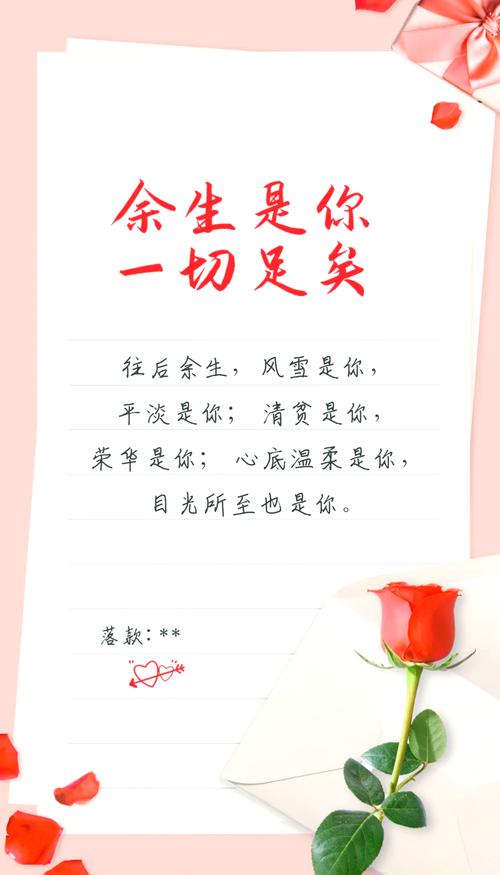 余生是你
一切足矣
往后余生，风雪是你，
平淡是你；清贫是你，
荣华是你；心底温柔是你，
目光所至也是你。
落款：**